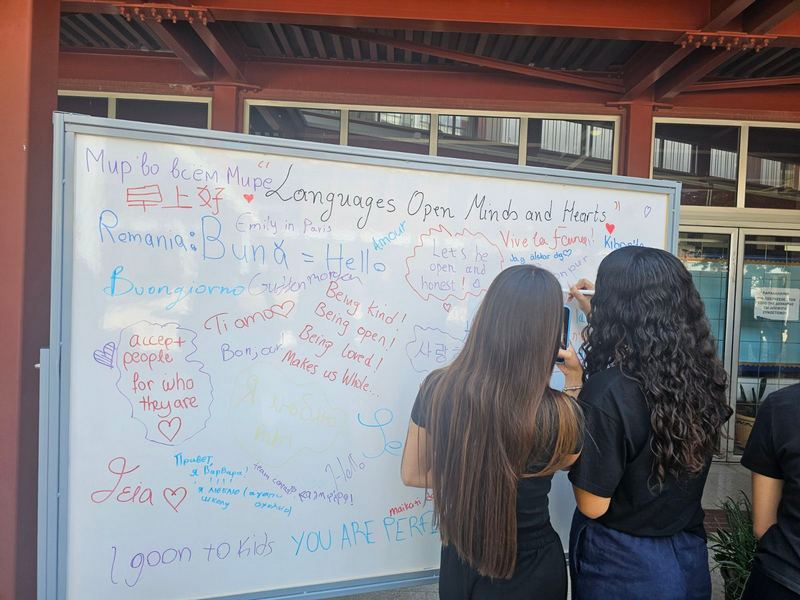 Мир во всем Мире
"Languages Open Minds and Hearts"
早上好
Emily in Paris
Romania: Bună = Hello
Amour
Let's be
open and
honest!
Vive la France!
Jag älskar dig
Buongiorno
Guttenmorgen
Being kind!
Being open!
Being loved!
Makes us Whole...
Ti amo
Bonjour
사랑
accept
people
for who
they are
Я люблю
Hello
Привет,
я Варвара!
!!!!
Я люблю
школу
Γεια
team canada
I goon to kids
YOU ARE PERF